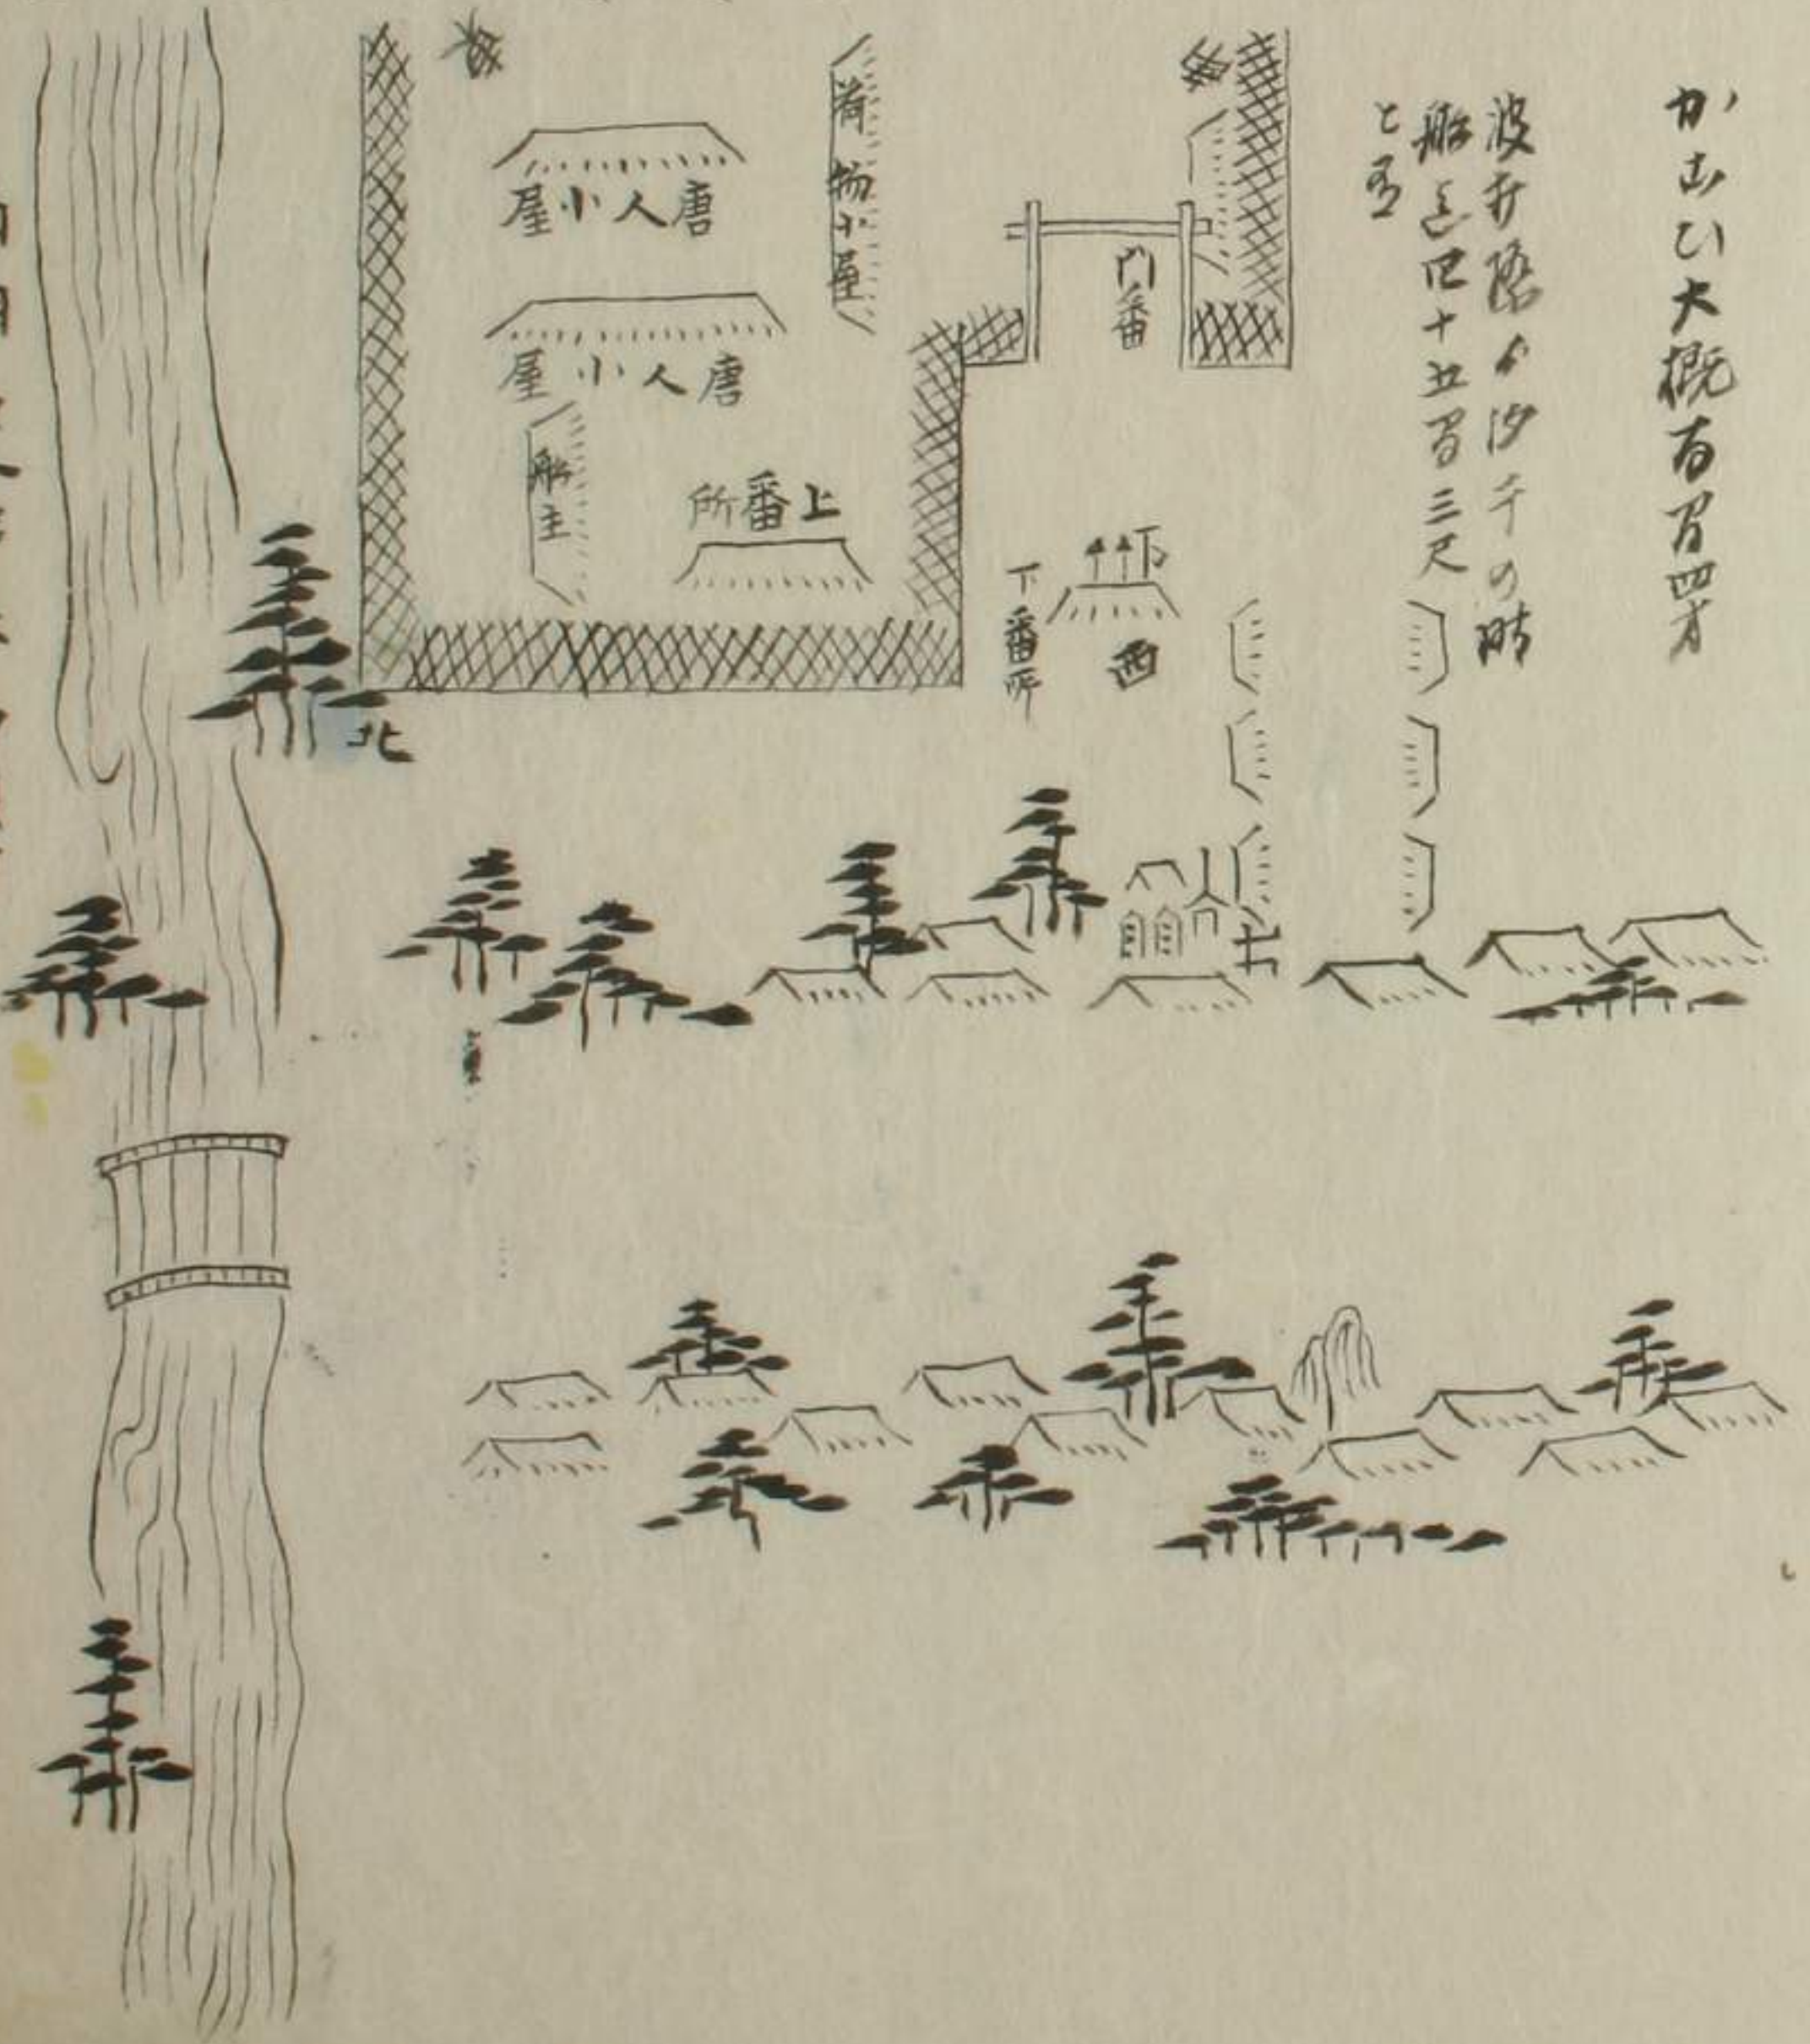 かこひ大概百間四方
波打際より汐干の時
船迄四十五間三尺
と云
門番
荷物小屋
唐人小屋
唐人小屋
船主
上番所
下番所
西
北